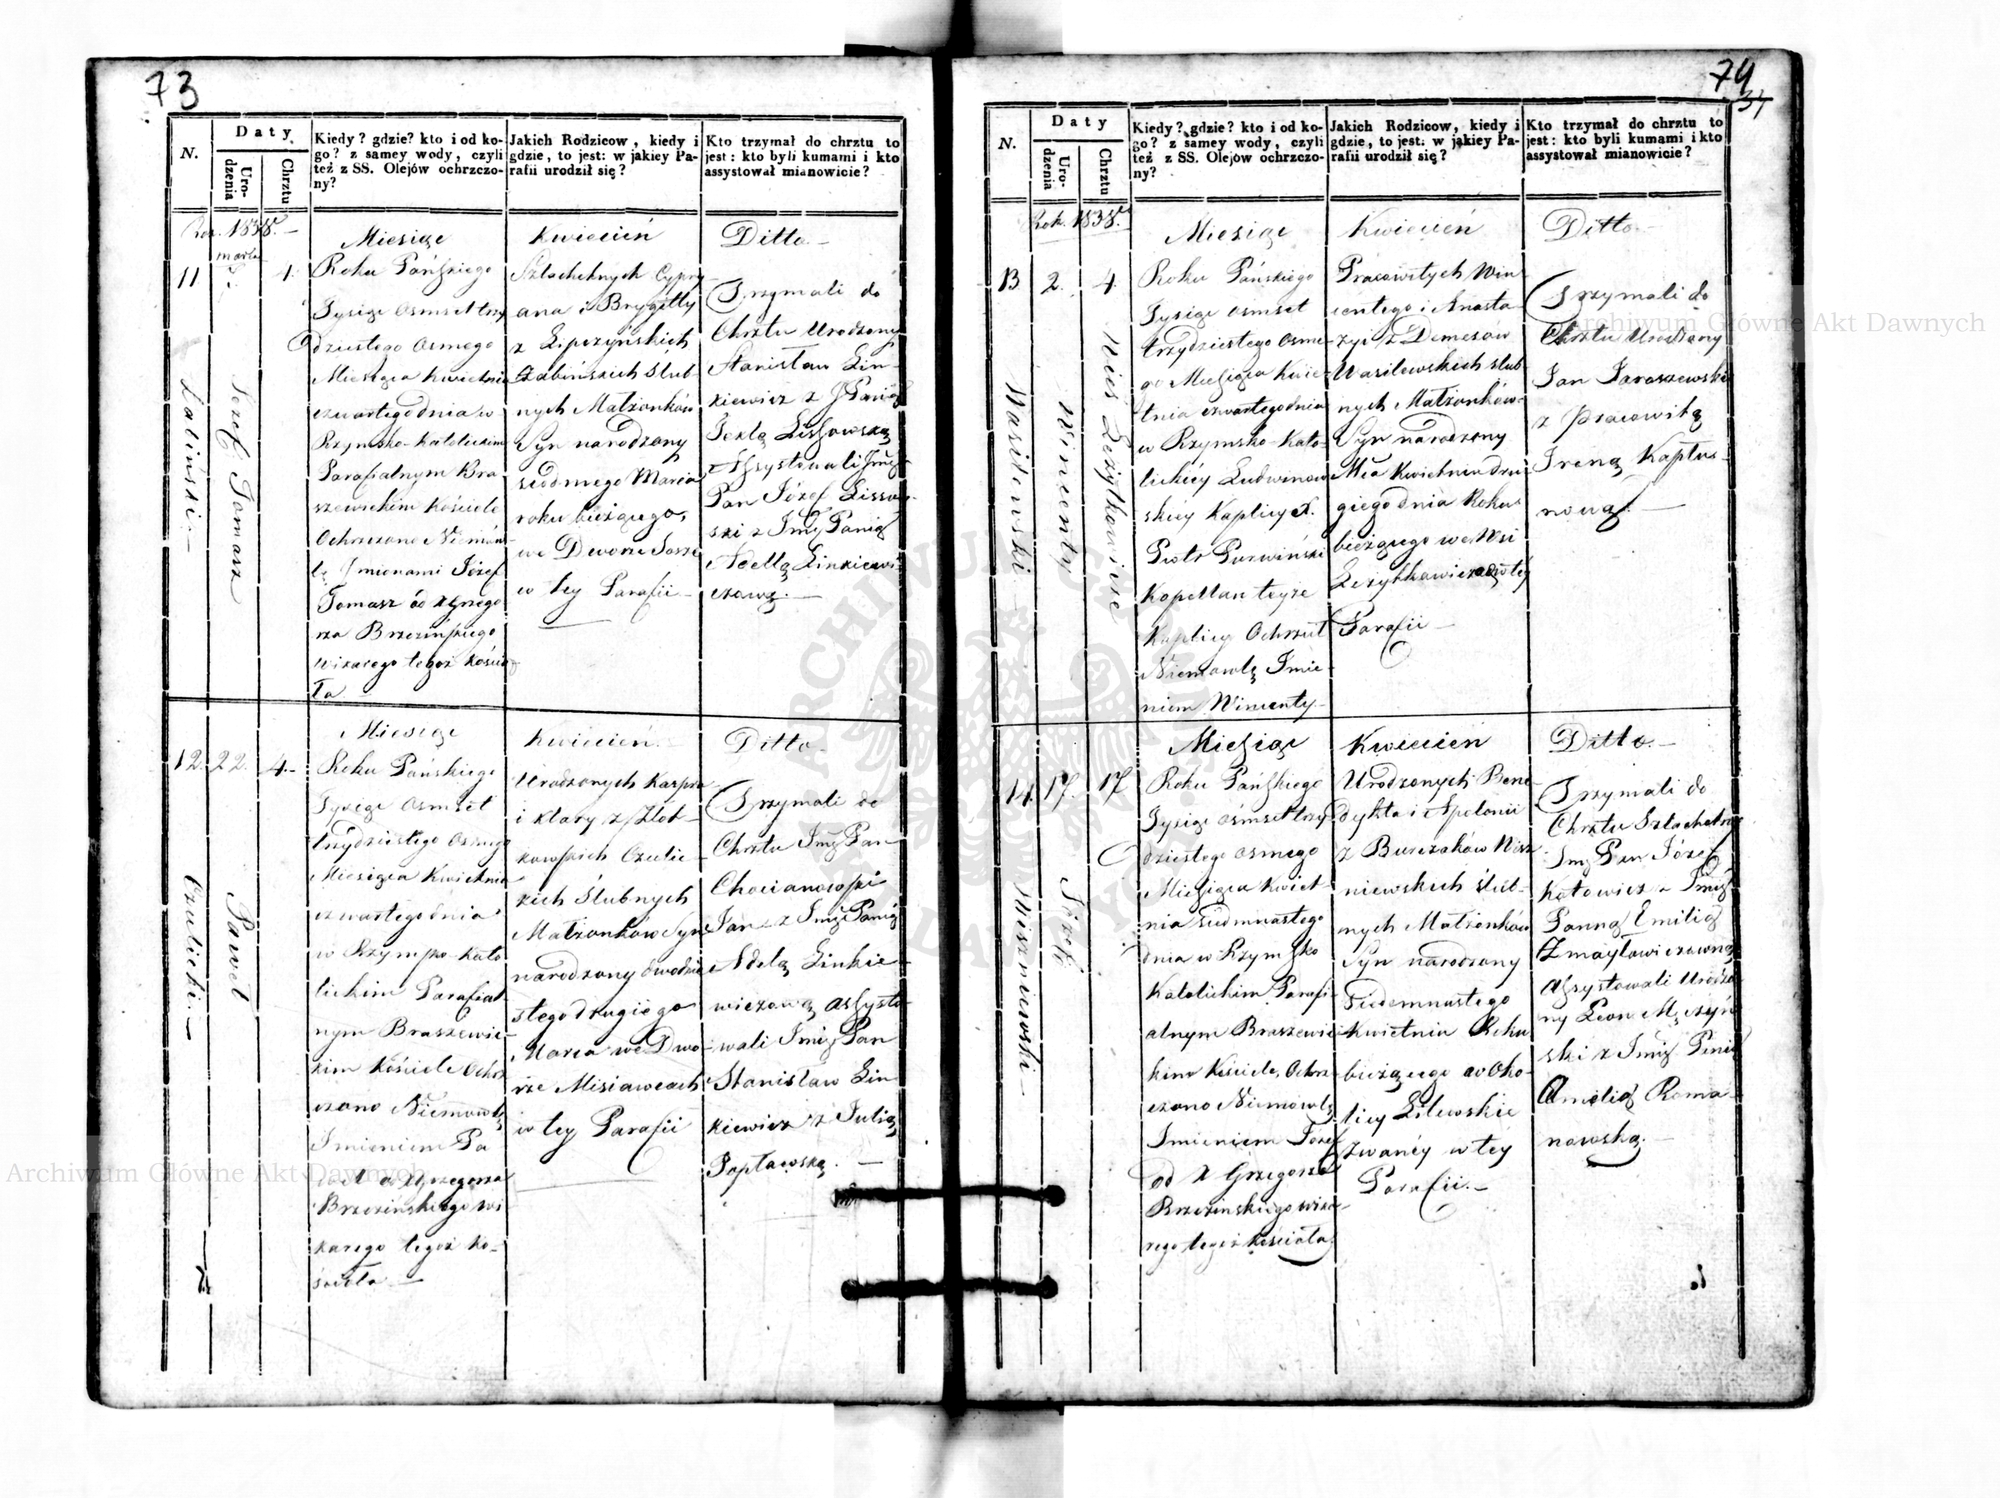 73
N.
Daty
Urodzenia
Chrztu
Kiedy? gdzie? kto i od ko-
go? z samey wody, czyli
też z SS. Olejów ochrzczo-
ny?
Jakich Rodzicow, kiedy i
gdzie, to jest: w jakiey Pa-
rafii urodził się?
Kto trzymał do chrztu to
jest: kto byli kumami i kto
assystował mianowicie?
Rok 1838.
Miesiąc
Kwiecień
Ditto.
11.
4.
Józef Tomasz
Roku Pańskiego
Tysiąc osmset trzy
dziestego osmego
Miesiąca Kwietnia
czwartego dnia w
Rzymsko-Katolickim
Parafialnym Bra
szewickim Kościele
Ochrzczono Niemów
lę Imionami Józef
Tomasz od X Grzego
rza Brzezińskiego
wikarego tegoż kościo
ła
Szlachetnych Cypry
ana i Brygitty
z Lipczyńskich
Żabińskich Ślub
nych Małżonków
Syn narodzony
siódmego Marca
roku bieżącego,
w tey Parafii
Trzymali do
Chrztu Urodzony
Stanisław Lin
kiewicz z
Teklą
Assystowali
Pan Józef
ski z Imć Panią
Adellą Linkiewi
czową.
12.
22.
4.
Paweł
Czulicki
Miesiąc
Kwiecień
Ditto
Roku Pańskiego
Tysiąc osmset
trzydziestego osmego
Miesiąca Kwietnia
czwartego dnia
w Rzymsko-Kato
lickim Parafial
nym Braszewic
kim Kościele Ochrz
czono Niemowlę
Imieniem Pa
weł od X Grzegorza
Brzezińskiego wi
karego tegoż ko
ścioła
Urodzonych Kaspra
i Klary z
Czulic
kich Ślubnych
Małżonków Syn
narodzony dwudzie
stego drugiégo
Marca we Dwo
rze Misiawcach
w tey Parafii
Trzymali do
Chrztu Imć Pan
Jan z Imć Panią
Adelą Linkie
wiczową assysto
wali Imć Pan
Stanisław Lin
kiewicz z Julią
74
37
N.
Daty
Urodzenia
Chrztu
Kiedy? gdzie? kto i od ko-
go? z samey wody, czyli
też z SS. Olejów ochrzczo-
ny?
Jakich Rodzicow, kiedy i
gdzie, to jest: w jakiey Pa-
rafii urodził się?
Kto trzymał do chrztu to
jest: kto byli kumami i kto
assystował mianowicie?
Rok 1838.
Miesiąc
Kwiecień
Ditto.
13
2.
4.
Wasilewski
Wincenty
Roku Pańskiego
Tysiąc osmset
trzydziestego osme
go Miesiąca Kwie
tnia czwartego dnia
w Rzymsko-Kato
lickiéy Ludwinow
skiéy Kaplicy X.
Piotr Purwiński
Kapellan teyże
Kaplicy Ochrzcił
Niemowlę Imie
niem Wincenty
Pracowitych Win
centego i Anasta
zyi z Demesów
Wasilewskich ślub
nych Małżonków
Syn narodzony
Mca Kwietnia dru
giego dnia Roku
bieżącego we Wsi
w téy
Parafii
Trzymali do
Chrztu Urodzony
Jan Jaraszewski
z Pracowitą
Ireną Kaptus
nową.
14
17.
17
Józef
Wiszniewski
Miesiąc
Kwiecień
Ditto.
Roku Pańskiego
Tysiąc ośmset trzy
dziestego osmego
Miesiąca Kwiet
nia siedmnastego
dnia w Rzymsko
Katolickim Parafi
alnym Braszewic
kim Kościele, Ochrz
czono Niemowlę
Imieniem Józef
od X Grzegorza
Brzezinskiego wika
rego tegoż kościoła
Urodzonych Bene
dykta i Apolonii
z Burczaków Wisz
niewskich ślub
nych Małżonków
Syn narodzony
Siedemnastego
Kwietnia Roku
bieżącego w Oko
licy
zwanéy w tey
Parafii.
Trzymali do
Chrztu Szlachetny
Imć Pan Józef
Katowicz z Imć
Panną Emilią
Zmaytowiczówną
Assystowali Urodzo
ny Leon
ski z Imć Panią
Emilią Roma
nowską.
Archiwum Główne Akt Dawnych
Archiwum Główne Akt Dawnych